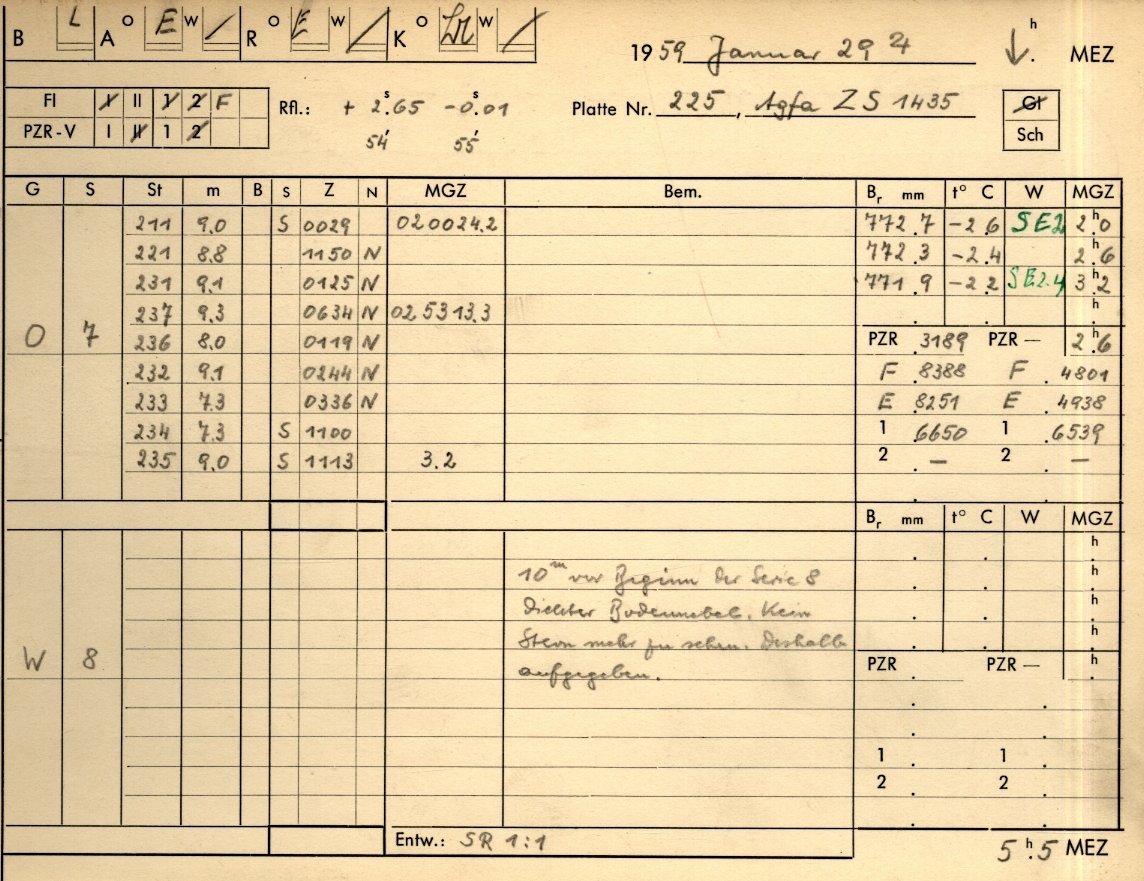 B L A O E W / R O E W / K O W /
1959 Januar 29.2 h MEZ
FI I II 1 2 F
PZR-V I II 1 2
Rfl.: + 2.s65 -0.s01
54' 55'
Platte Nr. 225, Agfa ZS 1435
Gl
Sch
G S St m B S Z N MGZ Bem. Br mm t° C W MGZ
211 9.0 S 0029 020024.2 772.7 -2.6 SE2 2.h0
221 8.8 1150 N 772.3 -2.4 2.h6
231 9.1 0125 N 771.9 -2.2 SE2.4 3.h2
237 9.3 0634 N 025313.3 h
O 7 236 8.0 0119 N PZR .3189 PZR— 2.h6
232 9.1 0244 N F .8388 F .4801
233 7.3 0336 N E .8251 E .4938
234 7.3 S 1100 1 .6650 1 .6539
235 9.0 S 1113 3.2 2 . — 2 . —
Br mm t° C W MGZ
h
10m vor Beginn der Serie 8 h
dichter Bodennebel. Kein h
Stern mehr zu sehen. Deshalb h
W 8 aufgegeben. PZR . PZR— h
1 . 1 .
2 . 2 .
Entw.: SR 1:1
5h.5 MEZ